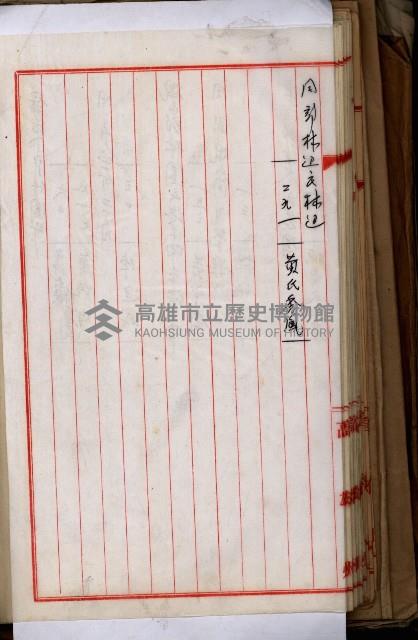 同郡林边庄林边
二九一
黄氏参鳳
高雄市立歷史博物館
KAOHSIUNG MUSEUM OF HISTORY